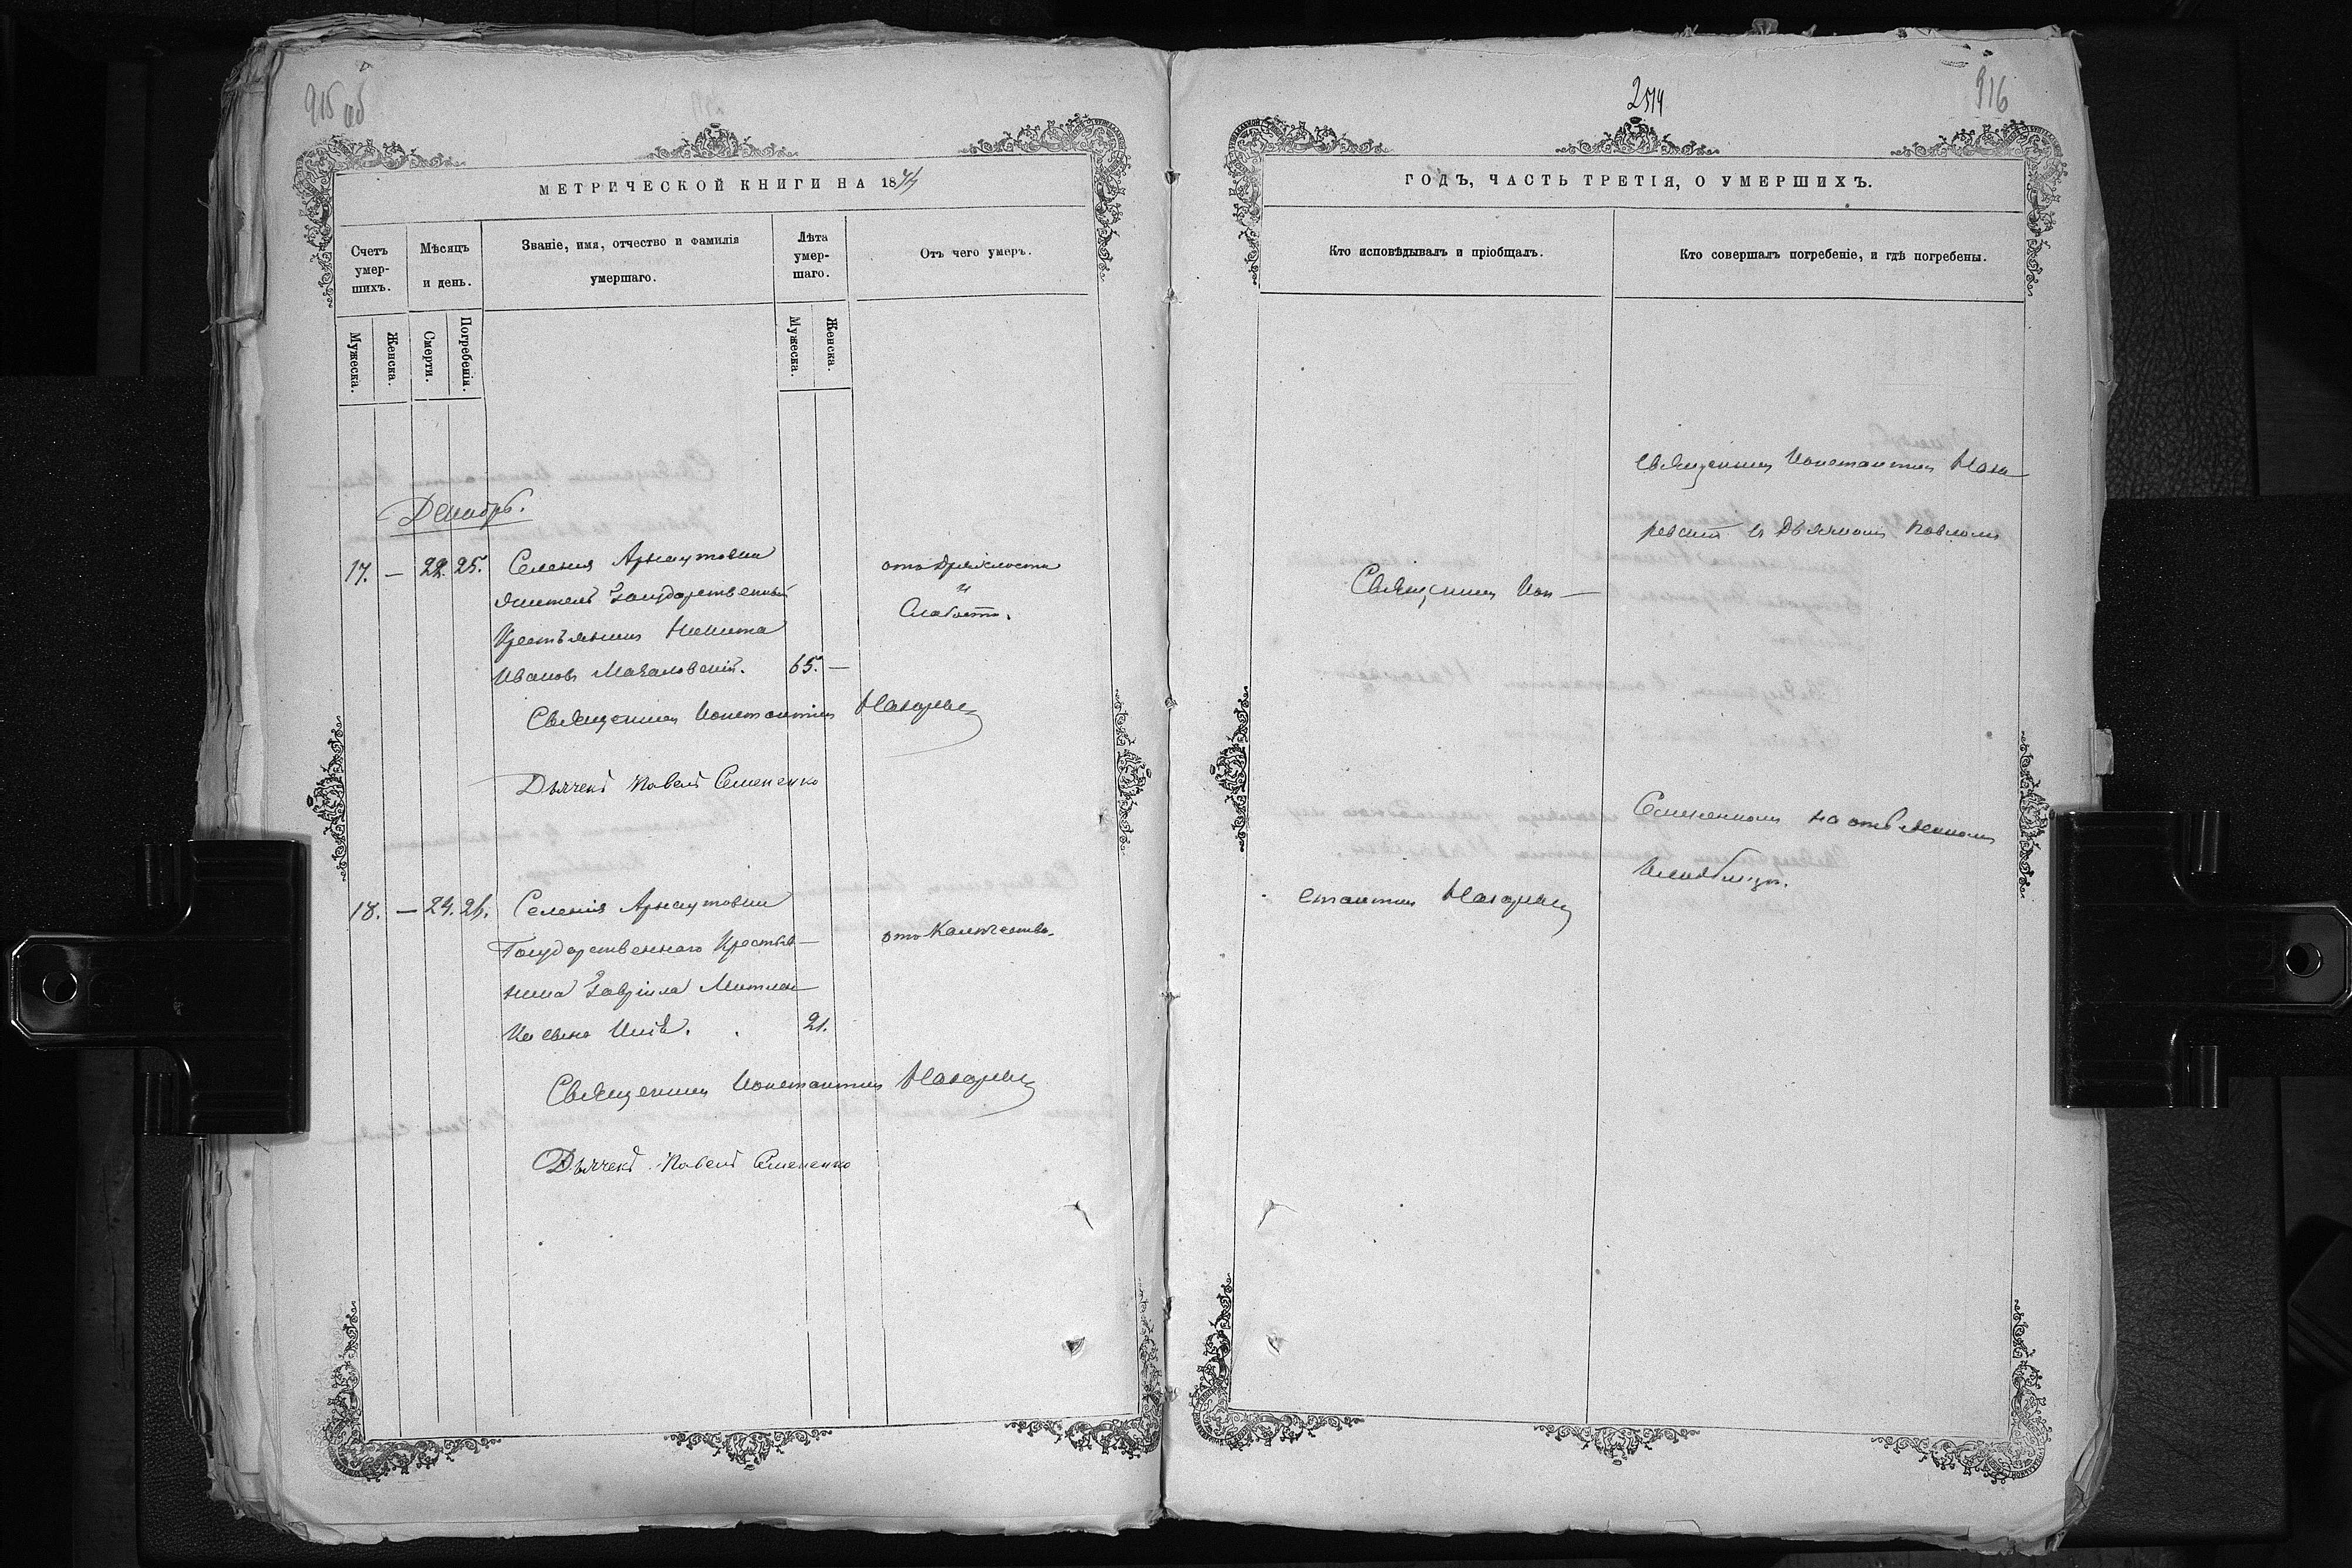 915 об
МЕТРИЧЕСКОЙ КНИГИ НА 1875
Счетъ умер-шихъ.
Мѣсяцъ и день.
Званіе, имя, отчество и фамилія умершаго.
Лѣта умер-шаго.
Отъ чего умеръ.
Мужеска.
Женска.
Смерти.
Погребенія.
Мужеска.
Женска.
Декабрь.
17. — 22. 25. Селенія Арнаутовки
житель Государственный
Крестьянинъ Никита
Ивановъ Макаловскій. 65. —
отъ Дряхлости
и
Слабости.
Священникъ Константинъ Назаревич
Дьячекъ Павелъ Семененко
18. — 24. 26. Селенія Арнаутовки
Государственнаго Крестья-
нина Гавріила
сынъ 21.
отъ
Священникъ Константинъ Назаревич
Дьячекъ Павелъ Семененко
2514
916
ГОДЪ, ЧАСТЬ ТРЕТІЯ, О УМЕРШИХЪ.
Кто исповѣдывалъ и пріобщалъ.
Кто совершалъ погребеніе, и гдѣ погребены.
Священникъ Кон-
стантинъ Назаревич
Священникъ Константинъ Наза-
ревичъ съ Дьячкомъ Павломъ
Семененкомъ на отведенномъ
Кладбищѣ.